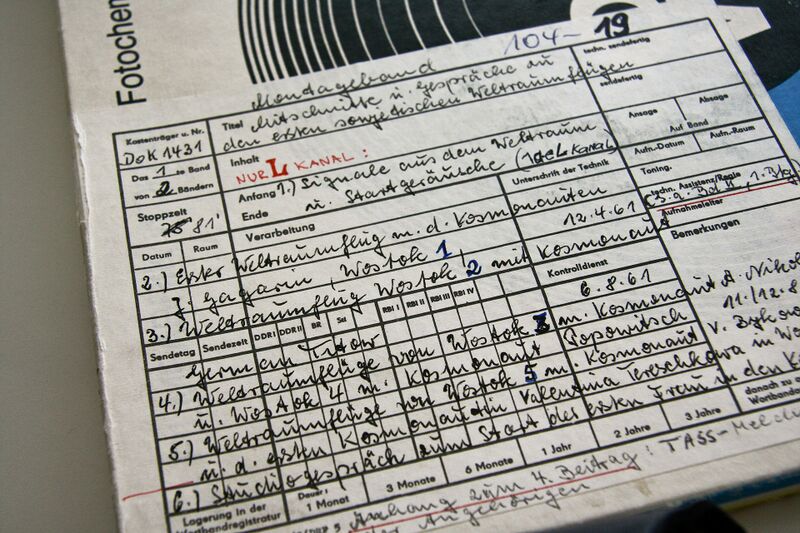 Fotochem
104-19
techn. sendefertig
Montageband
sendefertig
Titel Mitschnitte u. Gespräche zu
den ersten sowjetischen Weltraumflügen
Kostenträger u. Nr.
DoK 1431
Das 1 te Band
von 2 Bändern
Stoppzeit
81'
Inhalt
NUR L KANAL:
Ansage
Absage
Auf Band
Aufn.-Datum
Aufn.-Raum
Anfang 1.) Signale aus dem Weltraum
Ende u. Startgeräusche
Unterschrift der Technik
Toning.
techn. Assistenz/Regie
Aufnahmeleiter
Bemerkungen
Datum
Raum
Verarbeitung
2.) Erster Weltraumflug m. d. Kosmonauten
J. Gagarin, Wostok 1
12.4.61
3.) Weltraumflug Wostok 2 mit Kosmonaut
Kontrolldienst
Sendetag
Sendezeit
DDR I
DDR II
BR
Sa
RBI I
RBI II
RBI III
RBI IV
German Titow
6.8.61
4.) Weltraumflüge von Wostok 3 m. Kosmonaut A. Nikol
u. Wostok 4 m. Kosmonaut Popowitsch
11./12.8
5.) Weltraumflüge von Wostok 5 m. Kosmonaut V. Bykow
u. d. ersten Kosmonautin Valentina Tereschkowa in Wo
6.) Studiogespräch zum Start der ersten Frau in den Ko
danach zu
Wortbandar
Lagerung in der
Wortbandregistratur
Dauer:
1 Monat
3 Monate
6 Monate
1 Jahr
2 Jahre
3 Jahre
Anhang zum 4. Beitrag: TASS-Meld
der Angehörigen